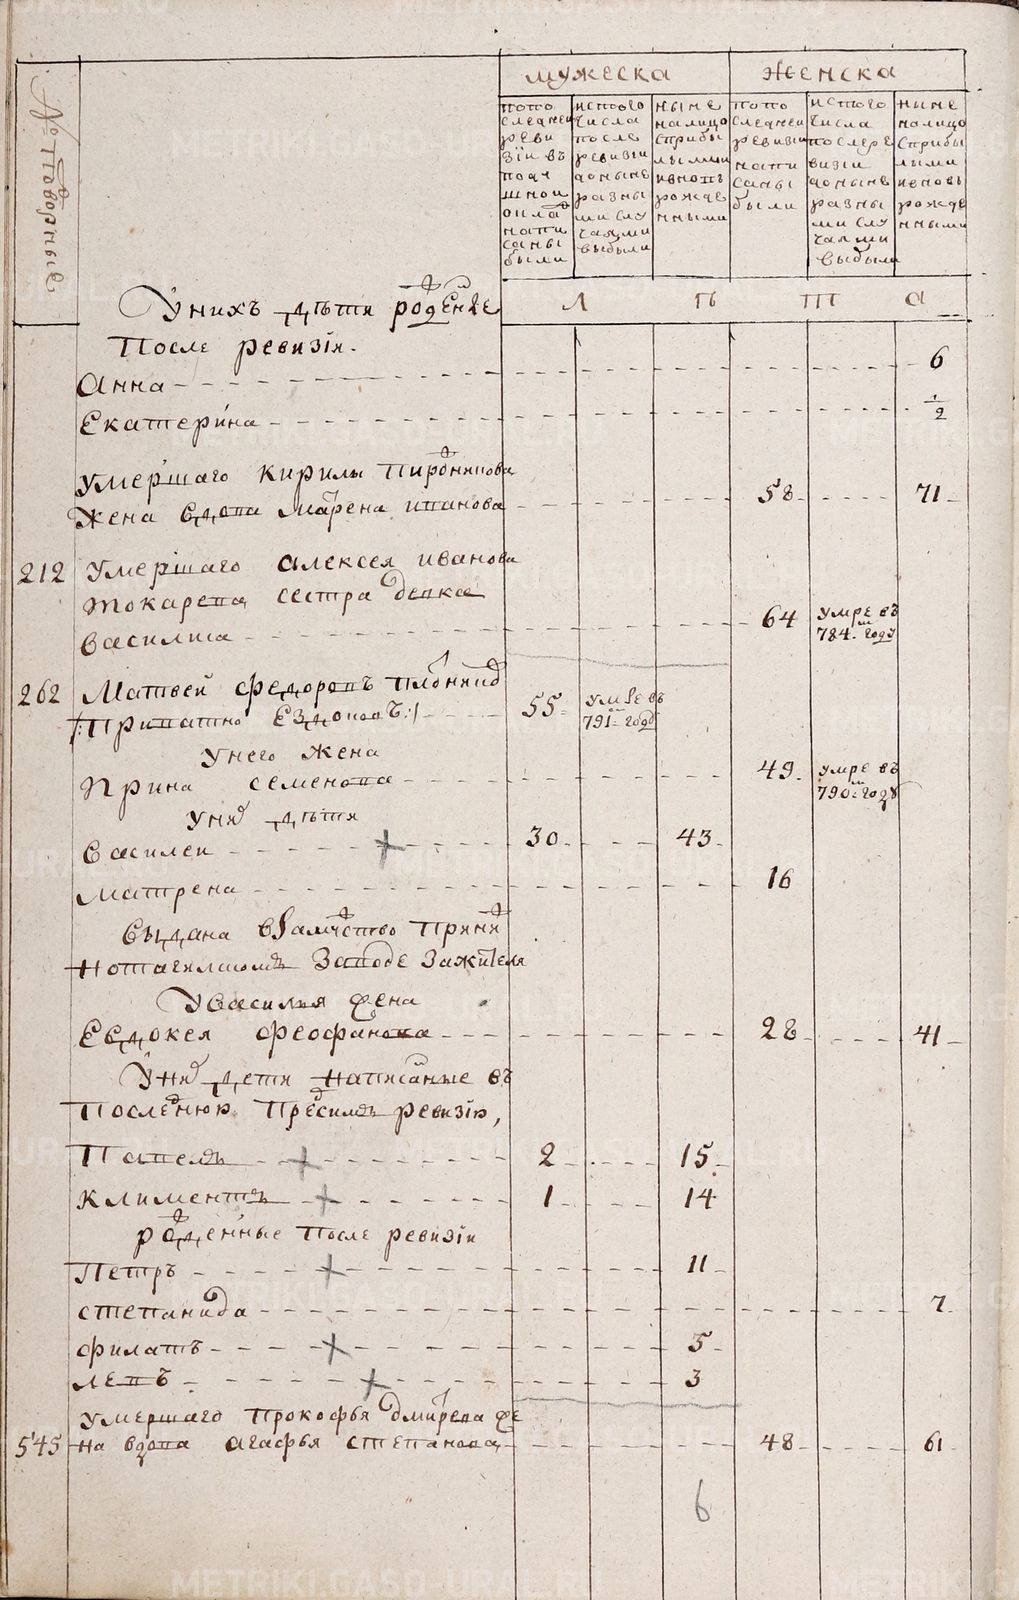 мужеска женска
№ подворные
попо следней реви зїи въ подушной окладъ написаны были
исного числа после ревизїи доныне разны ми слу чаями выбыли
ныне налицо сприбы лыми ивновь рожде нными
попо следней ревизїи напи саны были
истого числа после ре визїи доныне разны ми слу чаями выбыли
ныне налицо сприбы лыми ивновь рожде нными
Л ѣ т а
Унихъ дѣти рожденые
После ревизїи.
Анна 6
Екатерина 1/2
умершаго кирилы
жена вдова марена ивановa 58 71
212 умершаго алексея иванова
токарева сестра девка
василиса 64 умре въ 784м. году
262 Матвей федоровъ
/: Приватно Ездоковъ :/ 55 умре въ 791м году
Унего жена
Ирина семенова 49. умре въ 790м году
Унихъ дѣти
василей 30 43
матрена 16
выдана взамужство
Нотагилскомъ заводе зажителя
Увасилья жена
Евдокея феофанова 28 41
Унихъ дети написаные въ
последнюю предсимъ ревизїю,
Павелъ 2 15
Климентъ 1 14
рожденные после ревизїи
Петръ 11
степанида 7
филатъ 5
левъ 3
умершаго прокофья дмитрева же
545 на вдова агафья степанова 48 61
6
METRIKI.GASO-URAL.RU